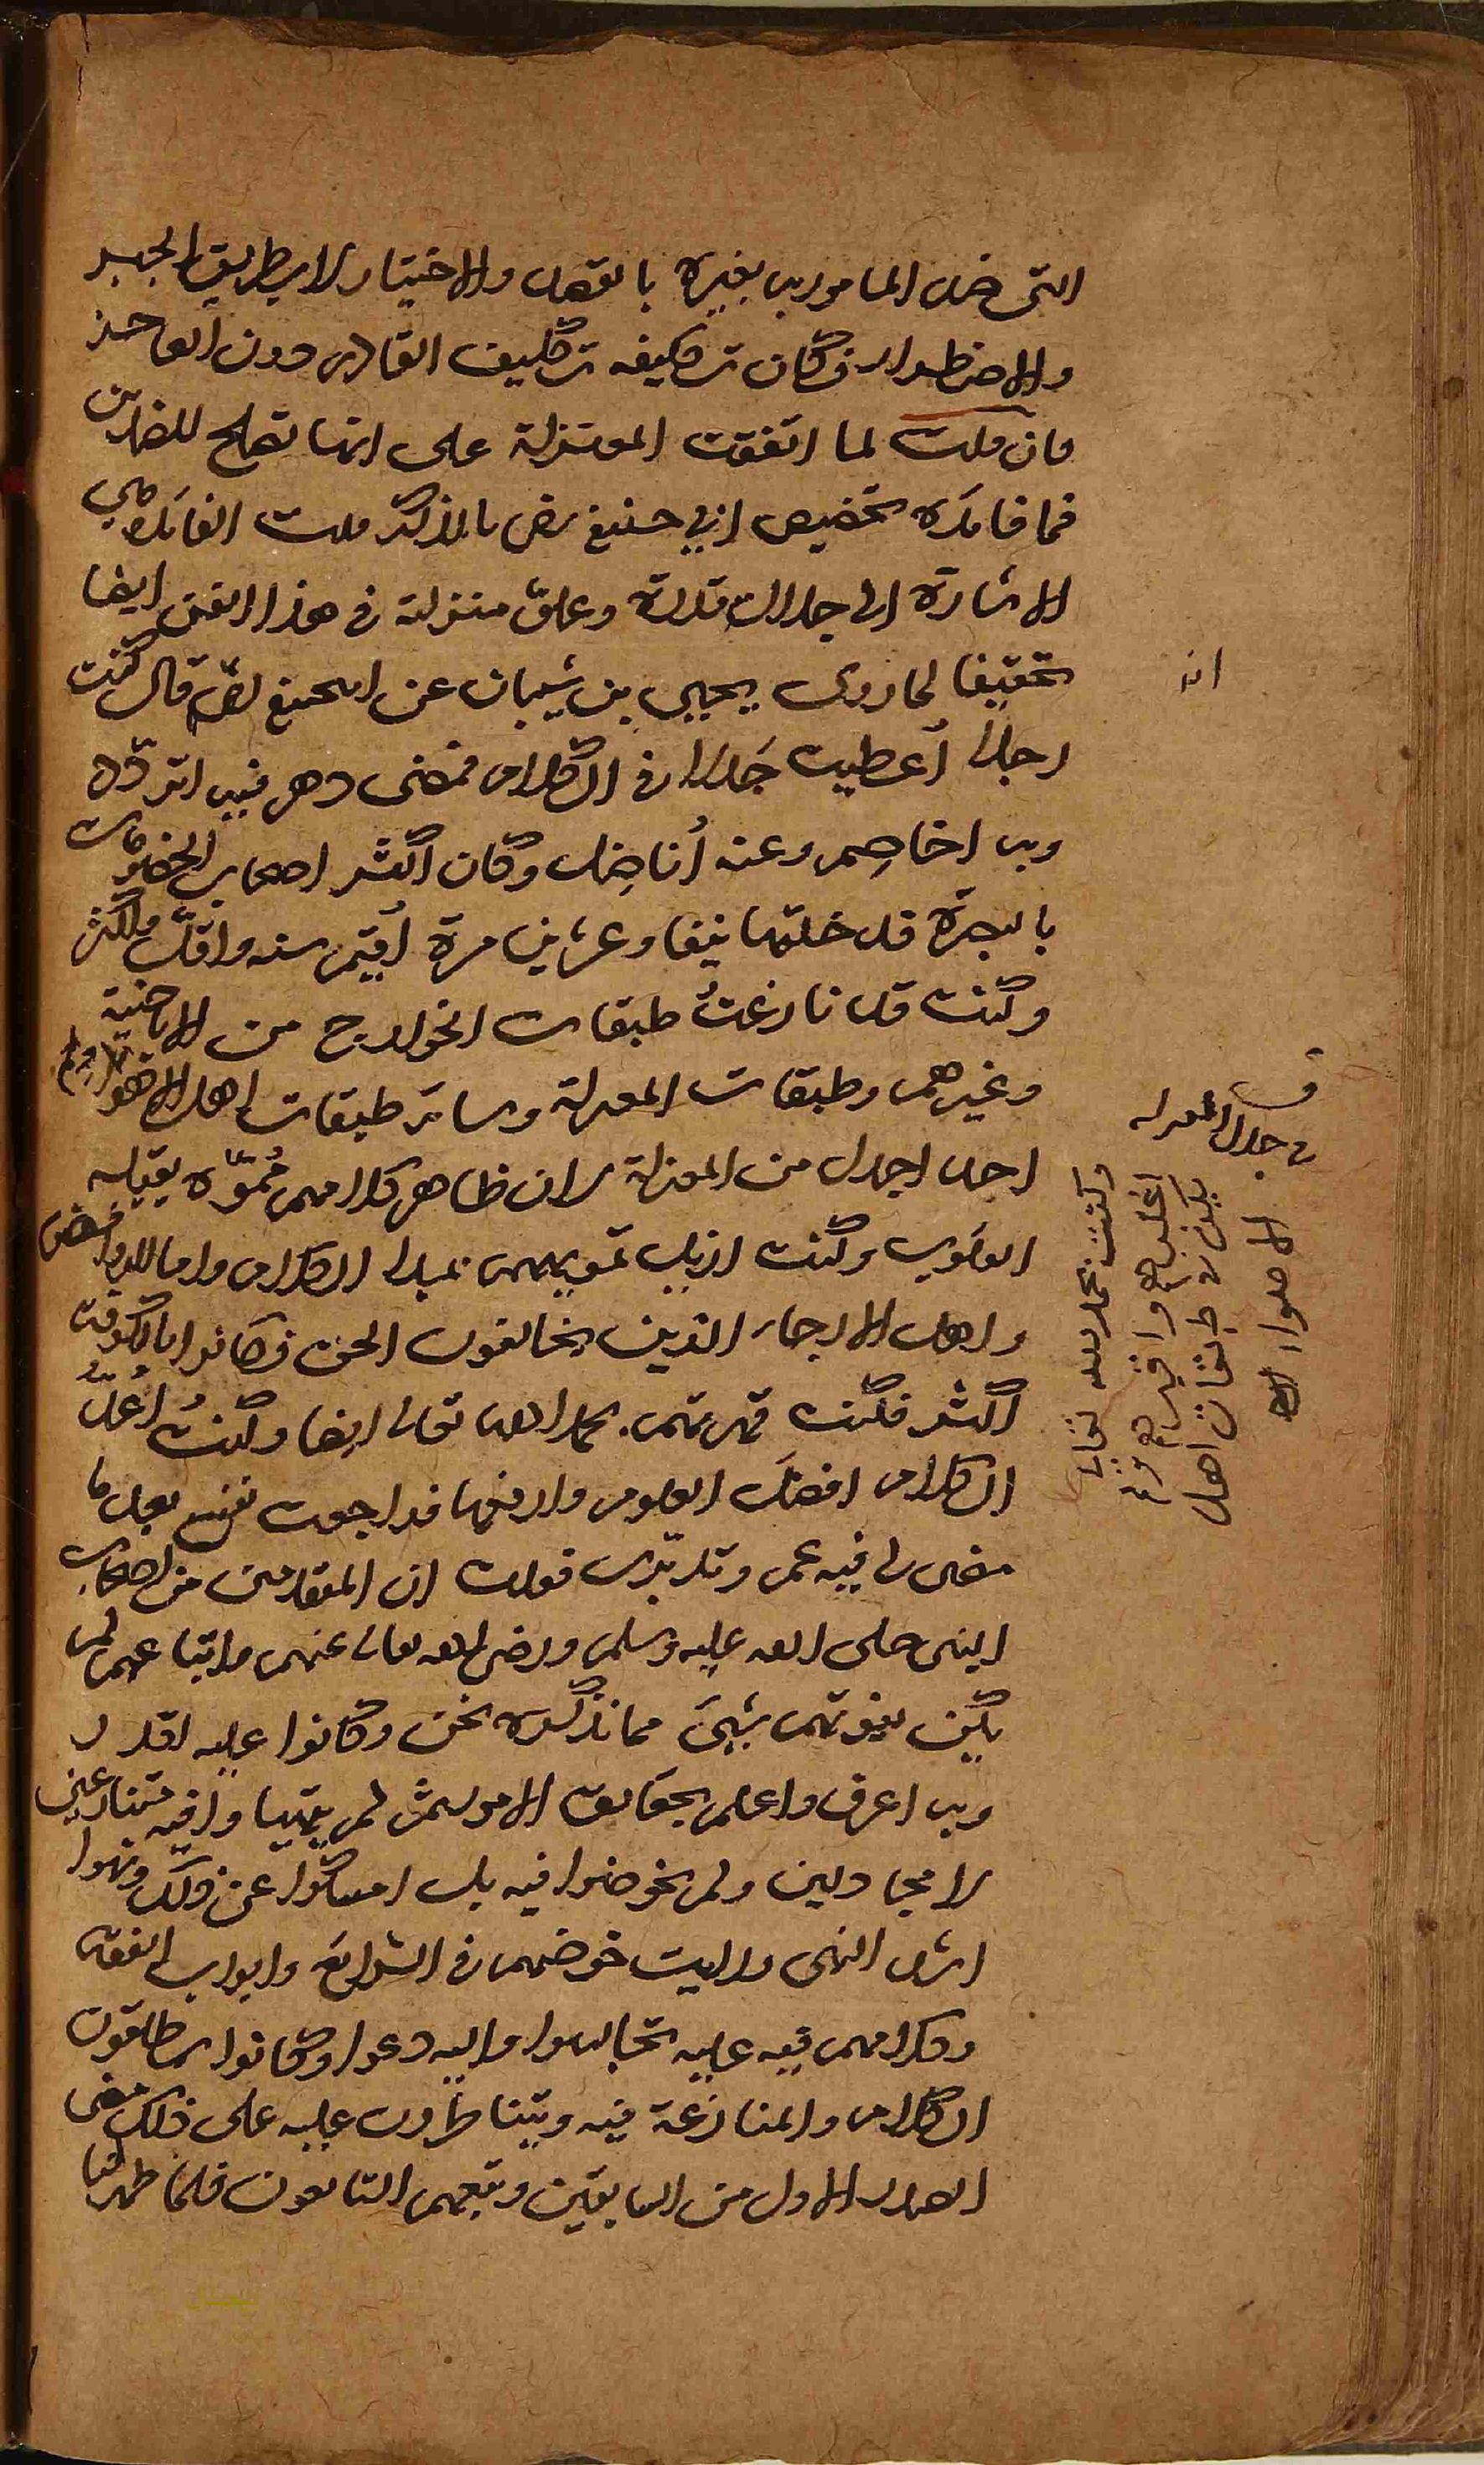 التى ضد المامور به بغيره بالقصد والاختيار لا بطريق الجبر
والاضطرار فكان تكليفه تكليف القادر دون العاجز
فان قلت لما اتفقت المعتزلة على انها تصلح للضدين
فما فائدة تخصيص ابي حنيفة رض بالذكر قلت الفائدة هي
الاشارة الى جلالة قدره وعلو منزلته في هذا الفن ايضا
تحقيقا لما روى يحيى بن شيبان عن ابي حنيفة رض قال كنت
رجلا أعطيت جدلا في الكلام فمضى دهر فيه اتردد
وبه اخاصم وعنه أناضل وكان اكثر اصحاب الخصومات
بالبصرة قد دخلتها نيفا وعشرين مرة أقيم سنه واقل واكثر
وكنت قد نازعت طبقات الخوارج من الاباضية
وغيرهم وطبقات المعتزلة وسائر طبقات اهل الاهواء
احد اجدل من المعتزلة لان ظاهر كلامهم مُموّه يقبله
القلوب وكنت ازيل تمويههم بمبدا الكلام واما الروافض
واهل الارجاء الذين يخالفون الحق فكانوا بالكوفة
اكثر فكنت قهرتهم بحمد الله تعالى ايضا وكنتُ أعدُّ
الكلام افضل العلوم وارفعها فراجعت نفسي بعد ما
مضى لي فيه عمر وتدبرت فقلت ان المتقدمين من اصحاب
النبى صلى الله عليه وسلم ورضى الله تعالى عنهم واتباعهم لم
يكن يفوتهم شيئ مما نذكره نحن وكانوا عليه اقدر
وبه اعرف واعلم بحقائق الامور ثم لم يتهيأوا فيه متنازعين
لا مجادلين ولم يخوضوا فيه بل امسكوا عن ذلك ونهوا
اشد النهى ورايت خوضهم في الشرائع وابواب الفقه
وكلامهم فيه عليه تجالسوا واليه دعوا وكانوا يطلقون
الكلام والمنازعة فيه ويتناظرون عليه على ذلك مضى
الصدر الاول من السابقين وتبعهم التابعون فلما ظهر لنا
انه
في جدال المعتزله
وكنت بحمد لله تعالى
اغلبهم واقهرهم ولم
يكن في طبقات اهل
الاهواء